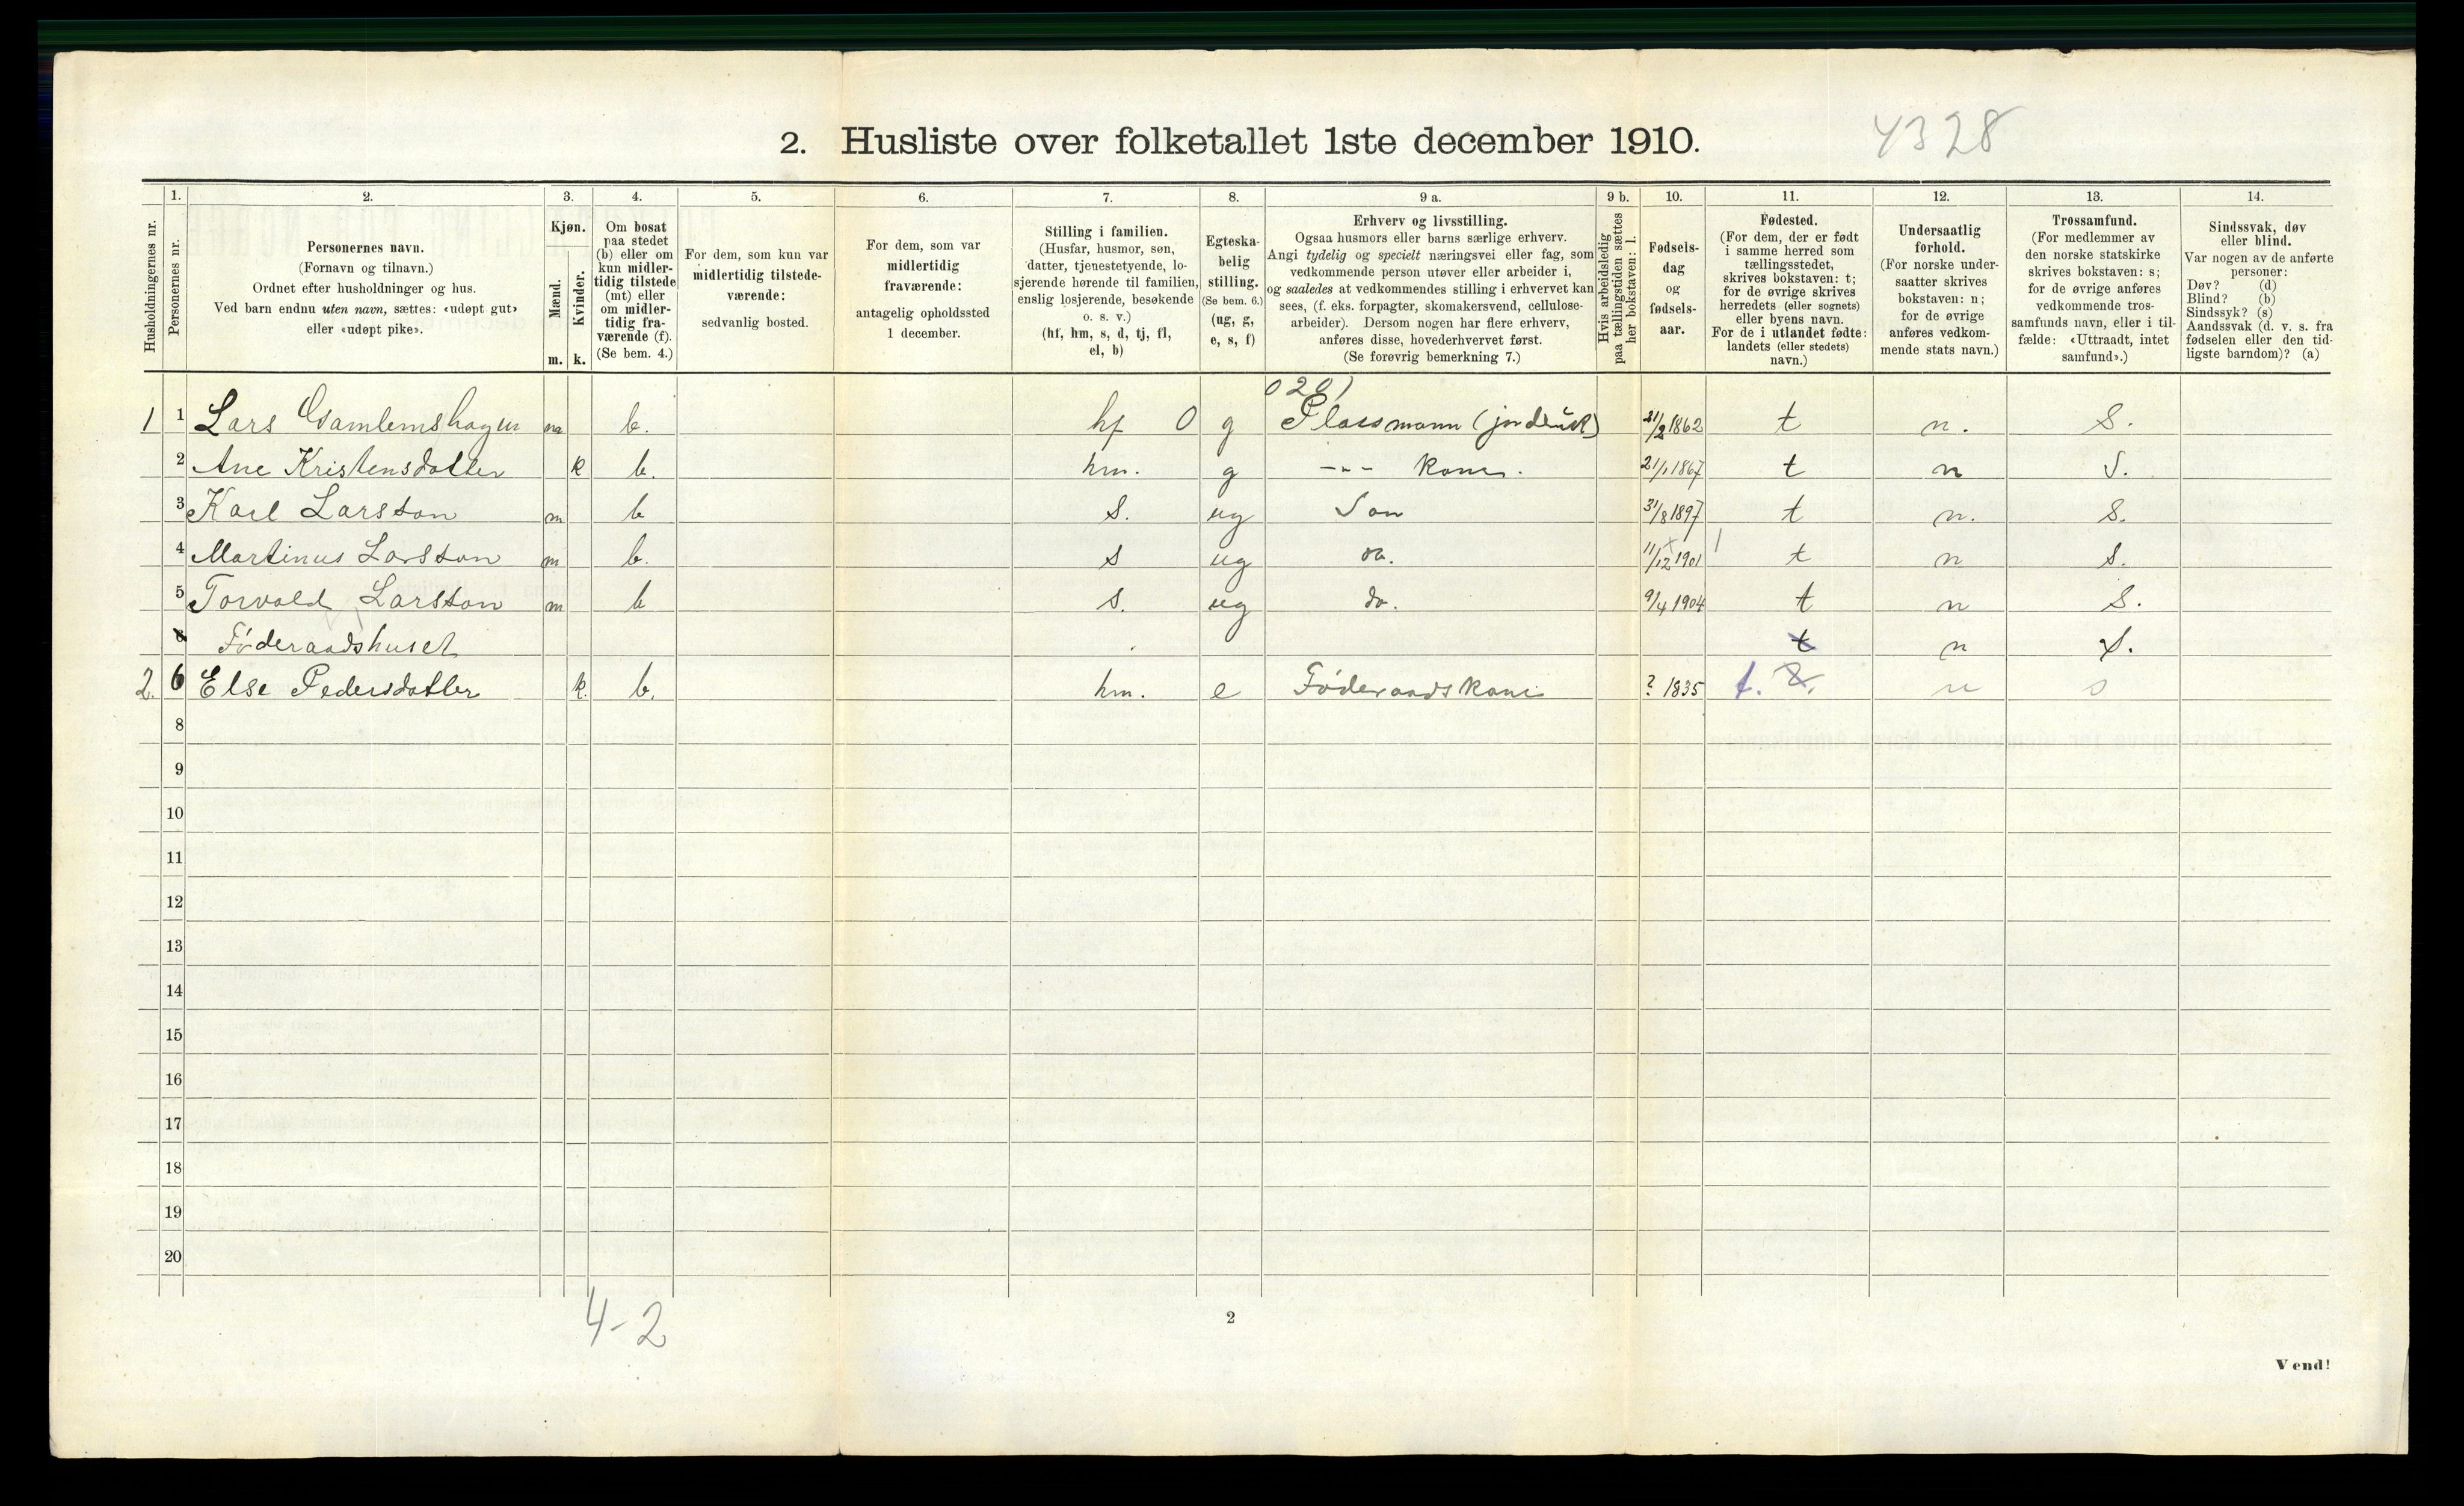 2. Husliste over folketallet 1ste december 1910.
4328
Husholdningernes nr.
1.
Personernes nr.
2.
Personernes navn.
(Fornavn og tilnavn.)
Ordnet efter husholdninger og hus.
Ved barn endnu uten navn, sættes: «udøpt gut»
eller «udøpt pike».
3.
Kjøn.
Mænd.
Kvinder.
m. k.
4.
Om bosat
paa stedet
(b) eller om
kun midler-
tidig tilstede
(mt) eller
om midler-
tidig fra-
værende (f).
(Se bem. 4.)
5.
For dem, som kun var
midlertidig tilstede-
værende:
sedvanlig bosted.
6.
For dem, som var
midlertidig
fraværende:
antagelig opholdssted
1 december.
7.
Stilling i familien.
(Husfar, husmor, søn,
datter, tjenestetyende, lo-
sjerende hørende til familien,
enslig losjerende, besøkende
o. s. v.)
(hf, hm, s, d, tj, fl,
el, b)
8.
Egteska-
belig
stilling.
(Se bem. 6.)
(ug, g,
e, s, f)
9 a.
Erhverv og livsstilling.
Ogsaa husmors eller barns særlige erhverv.
Angi tydelig og specielt næringsvei eller fag, som
vedkommende person utøver eller arbeider i,
og saaledes at vedkommendes stilling i erhvervet kan
sees, (f. eks. forpagter, skomakersvend, cellulose-
arbeider). Dersom nogen har flere erhverv,
anføres disse, hovederhvervet først.
(Se forøvrig bemerkning 7.)
9 b.
Hvis arbeidsledig
paa tællingstiden sættes
her bokstaven: l.
10.
Fødsels-
dag
og
fødsels-
aar.
11.
Fødested.
(For dem, der er født
i samme herred som
tællingsstedet,
skrives bokstaven: t;
for de øvrige skrives
herredets (eller sognets)
eller byens navn.
For de i utlandet fødte:
landets (eller stedets)
navn.)
12.
Undersaatlig
forhold.
(For norske under-
saatter skrives
bokstaven: n;
for de øvrige
anføres vedkom-
mende stats navn.)
13.
Trossamfund.
(For medlemmer av
den norske statskirke
skrives bokstaven: s;
for de øvrige anføres
vedkommende tros-
samfunds navn, eller i til-
fælde: «Uttraadt, intet
samfund».)
14.
Sindssvak, døv
eller blind.
Var nogen av de anførte
personer:
Døv? (d)
Blind? (b)
Sindssyk? (s)
Aandssvak (d. v. s. fra
fødselen eller den tid-
ligste barndom)? (a)
0201
1 1 Lars Gamlemshagen m b. hf 0 g Plassmann (jordbruk) 21/2 1862 t n. S.
2 Ane Kristensdatter k b. hm. g -"- kone. 21/1 1867 t n S.
3 Karl Larsson m b S. ug Son 31/8 1897 t n. S.
4 Martinus Larsson m b. S ug do. 11/12 1901 t n S.
5 Torvald Larsson m b S. ug do. 9/4 1904 t n S.
6 Føderaadshuset t n S.
2. 6 Else Pedersdatter k. b. hm. e Føderaadskone ? 1835 t. n s
8
9
10
11
12
13
14
15
16
17
18
19
20
4-2
2
Vend!